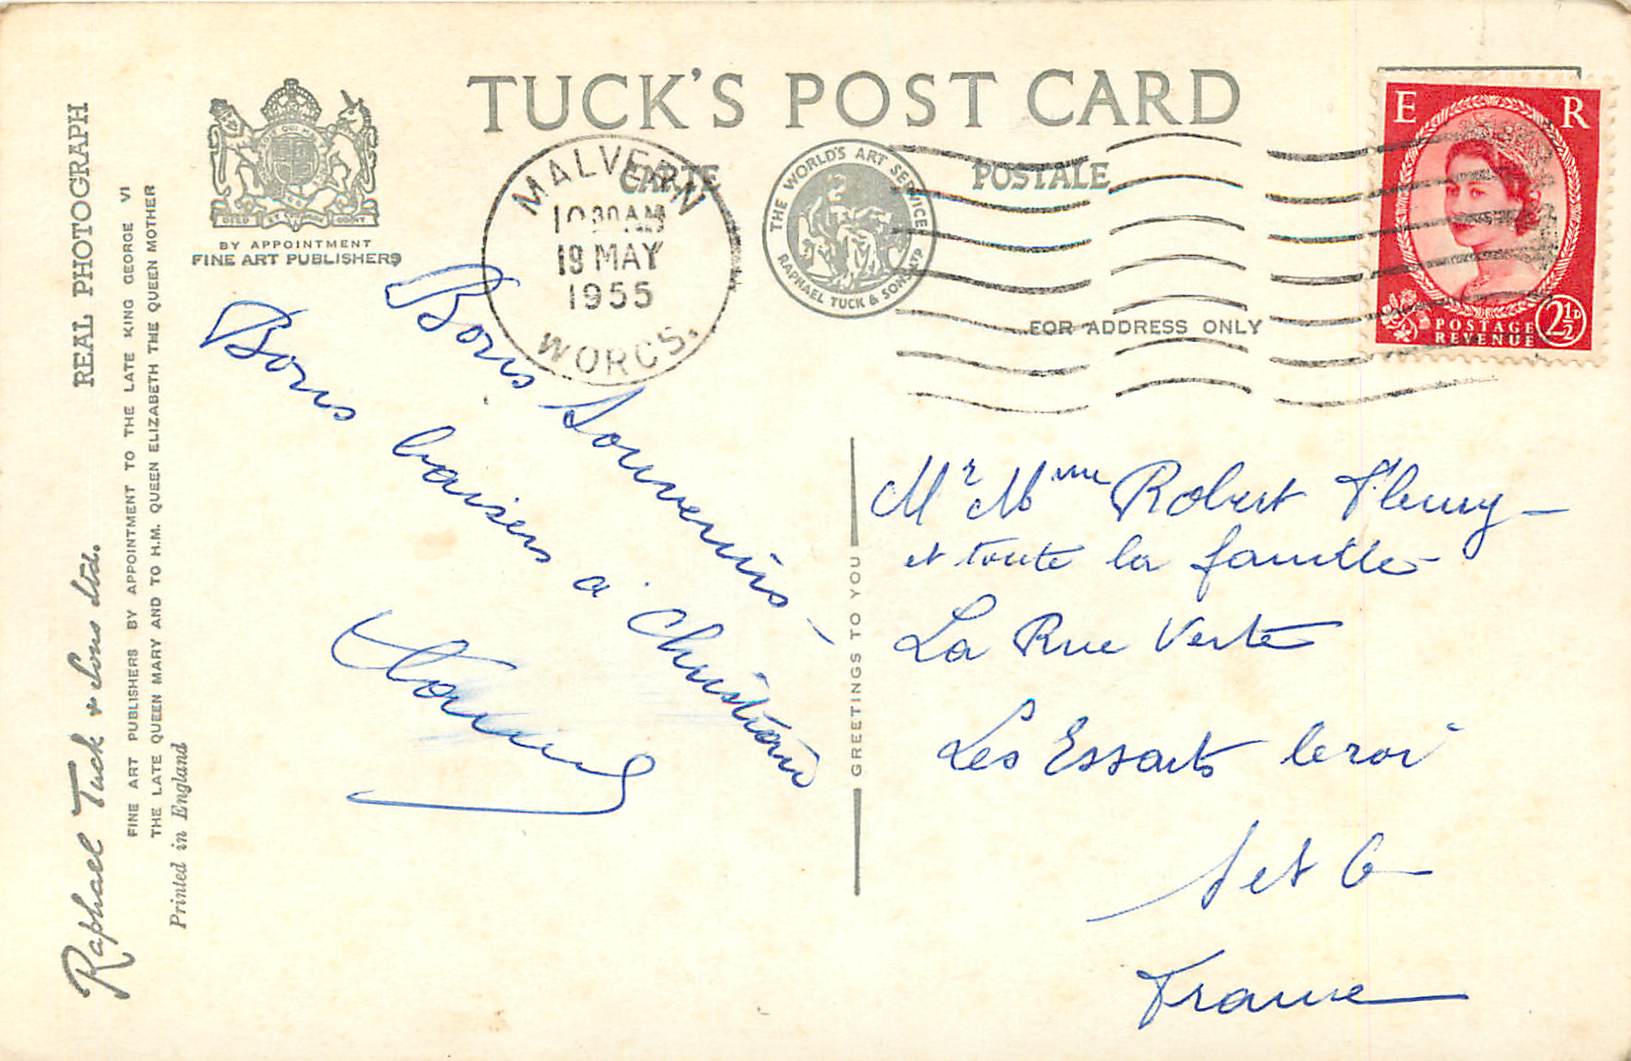 TUCK'S POST CARD
CARTE POSTALE
BY APPOINTMENT
FINE ART PUBLISHERS
THE WORLD'S ART SERVICE
RAPHAEL TUCK & SONS LTD
FOR ADDRESS ONLY
MALVERN
10 30 AM
19 MAY
1955
WORCS.
E R
POSTAGE
REVENUE
2½D
Bons Souvenirs -
Bons baisers à Christian
Mr Mme Robert Fleury -
et toute la famille
La Rue Verte
Les Essarts le roi
S et O
France
GREETINGS TO YOU
REAL PHOTOGRAPH
Raphael Tuck & Sons Ltd.
FINE ART PUBLISHERS BY APPOINTMENT TO THE LATE KING GEORGE VI
THE LATE QUEEN MARY AND TO H.M. QUEEN ELIZABETH THE QUEEN MOTHER
Printed in England